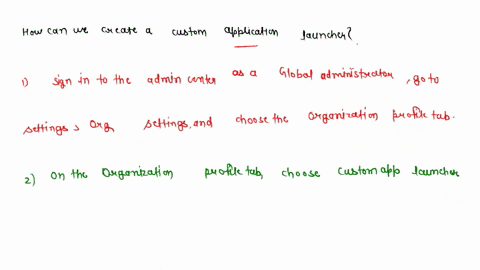 How can we create a custom application launcher?
1) sign in to the admin center as a Global administrator, go to
settings > Org settings, and choose the Organization profile tab.
2) on the Organization profile tab, choose Custom app launcher